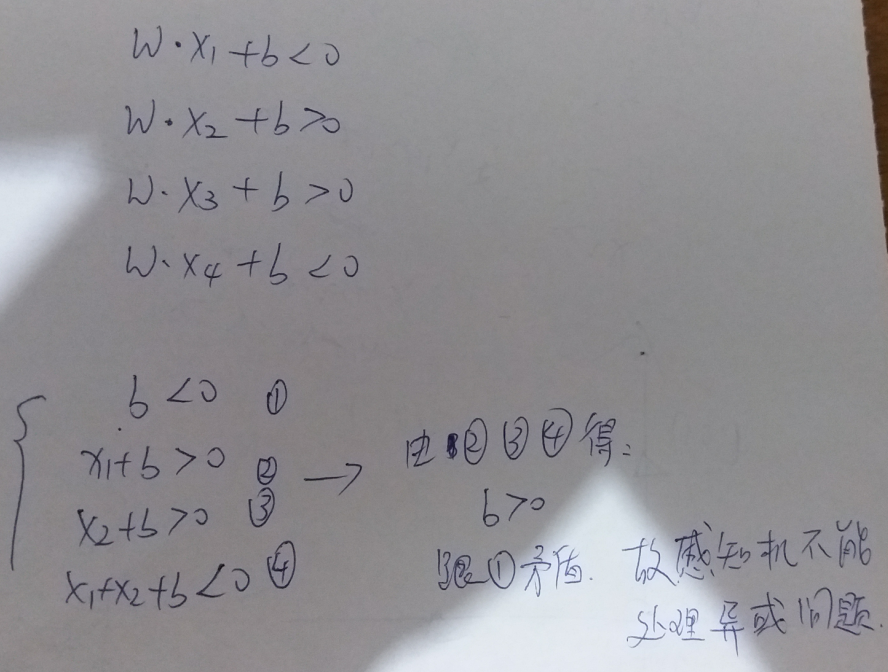 W·x₁+b<0
W·x₂+b>0
W·x₃+b>0
W·x₄+b<0
b<0 ①
x₁+b>0 ②
x₂+b>0 ③
x₁+x₂+b<0 ④
→ 由②③④得:
b>0
与①矛盾. 故感知机不能
处理异或问题.